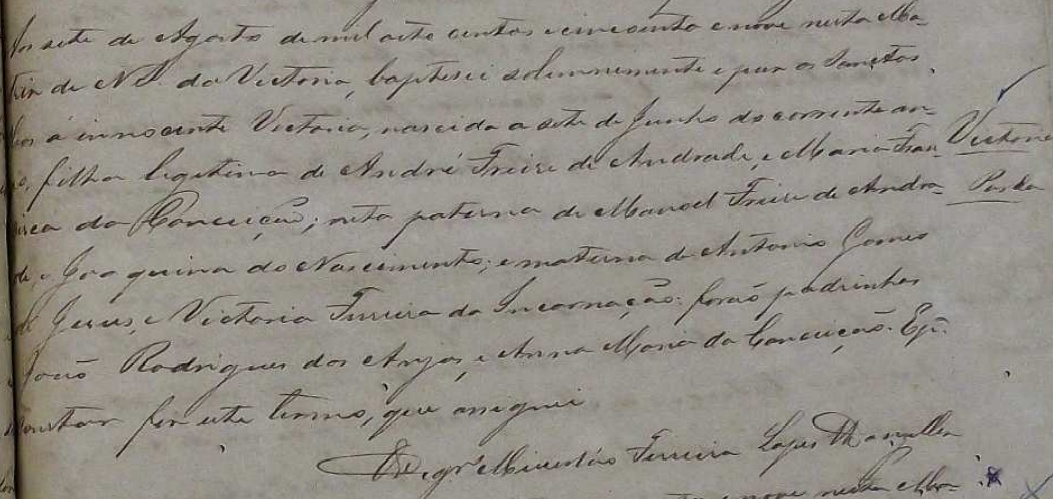 Aos sete de Agosto de mil oito centos e cincoenta e nove nesta Ma-
triz de N. S. da Victoria, baptisei solemnemente e puz os Sanctos
Oleos á innocente Victoria, nascida a sete de Junho do corrente an-
no, filha legitima de André Freire de Andrade, e Maria Fran-
cisca da Conceição; neta paterna de Manoel Freire de Andra-
de, e Joaquina do Nascimento; e materna de Antonio Gomes
de Jesus, e Victoria Ferreira da Incarnação: forão padrinhos
João Rodrigues dos Anjos, e Anna Maria da Conceição. E p.ª
constar fiz este termo, que assignei
Victoria
Parda
Ferreira Lopes
e nove nesta Ma-